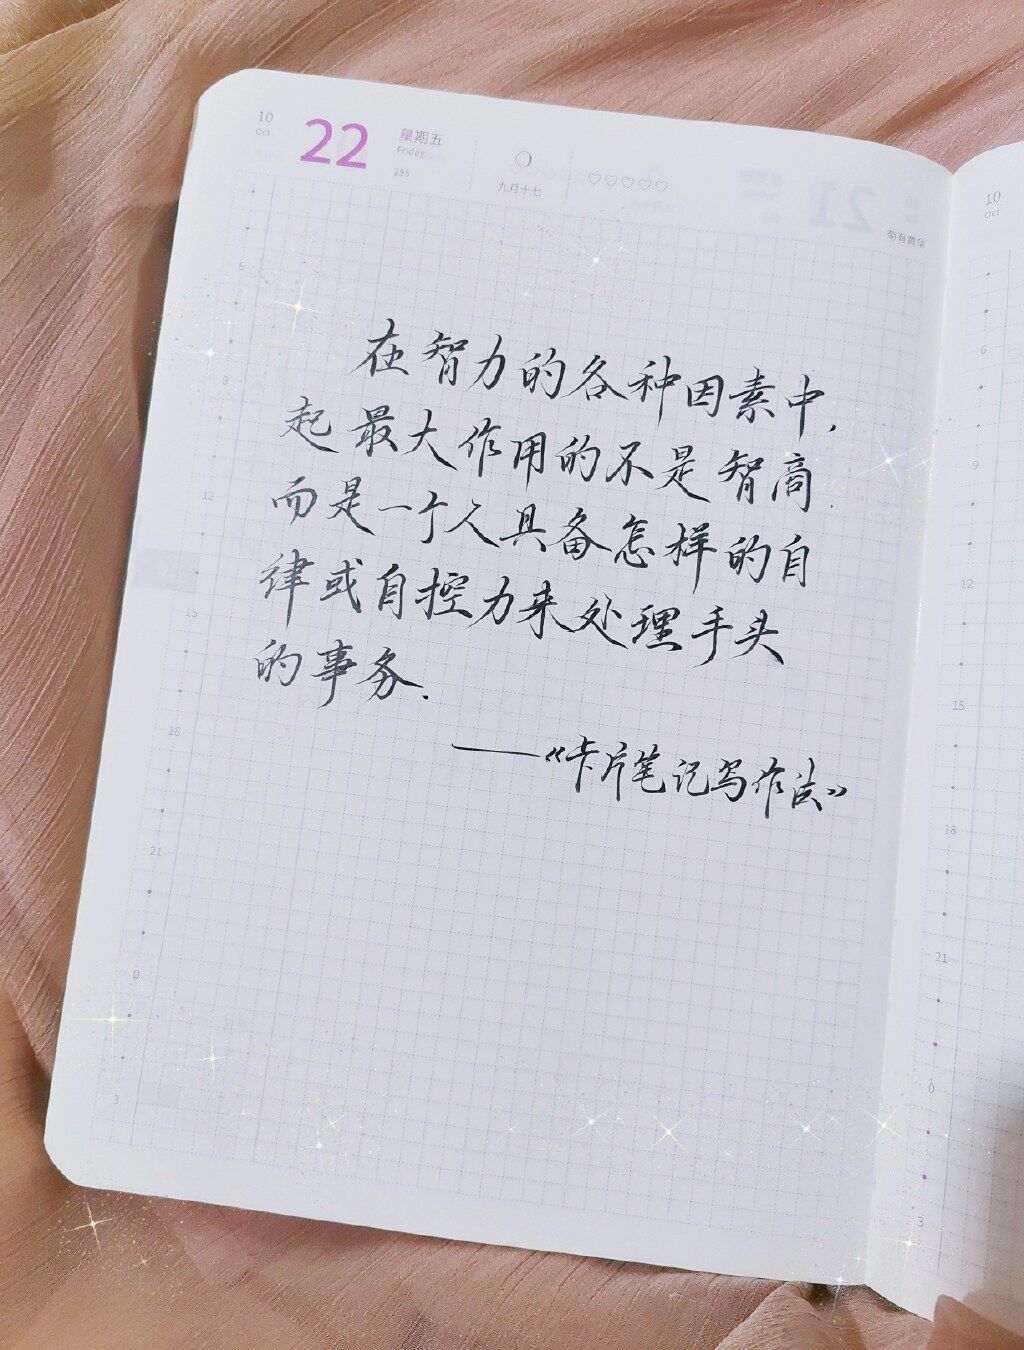 10
Oct
22
星期五
Friday
295
九月十七
♡♡♡♡♡
菊有黄华
在智力的各种因素中,
起最大作用的不是智商.
而是一个人具备怎样的自
律或自控力来处理手头
的事务.
——《卡片笔记写作法》
6
9
12
15
18
21
0
3
10
Oct
6
9
12
15
18
21
0
3